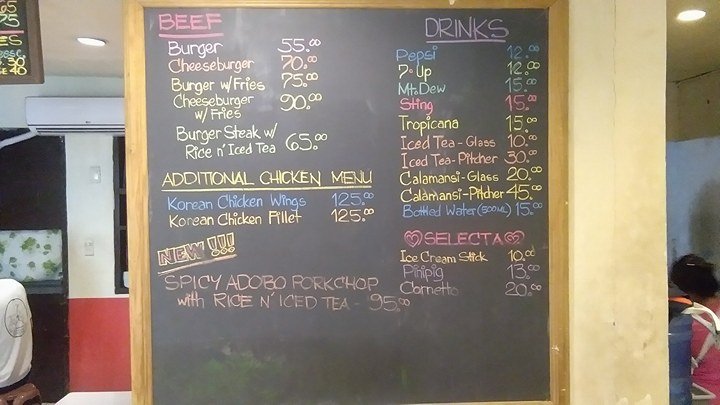 65
75
ES
40
BEEF
Burger 55.00
Cheeseburger 70.00
Burger w/Fries 75.00
Cheeseburger
w/Fries 90.00
Burger Steak w/
Rice n' Iced Tea 65.00
ADDITIONAL CHICKEN MENU
Korean Chicken Wings 125.00
Korean Chicken Fillet 125.00
NEW!!!
SPICY ADOBO PORKCHOP
with RICE N' ICED TEA - 95.00
DRINKS
Pepsi 12.00
7-Up 12.00
Mt. Dew 15.00
Sting 15.00
Tropicana 15.00
Iced Tea - Glass 10.00
Iced Tea - Pitcher 30.00
Calamansi - Glass 20.00
Calamansi - Pitcher 45.00
Bottled Water (500ML) 15.00
SELECTA
Ice Cream Stick 10.00
Pinipig 13.00
Cornetto 20.00